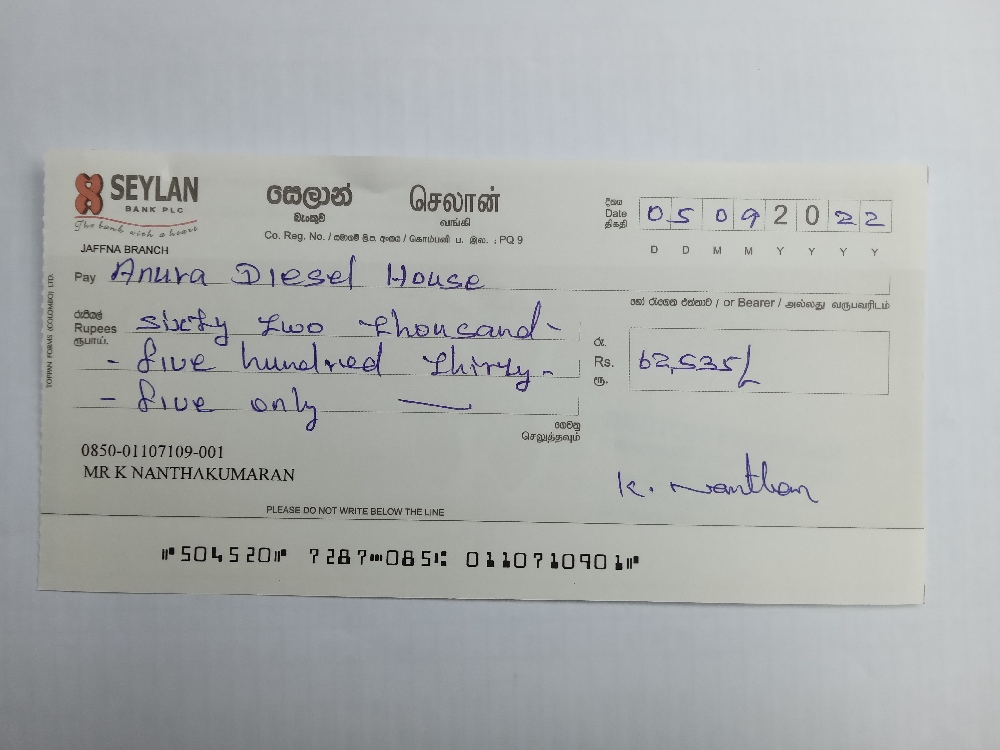 SEYLAN
BANK PLC
The bank with a heart
JAFFNA BRANCH
සෙලාන්
බැංකුව
செலான்
வங்கி
Co. Reg. No. / සමාගම් ලි.ප. අංකය / கொம்பனி ப. இல. : PQ 9
දිනය
Date
திகதி
05 09 2022
D D M M Y Y Y Y
Pay Anura Diesel House
හෝ රැගෙන එන්නාට / or Bearer / அல்லது வருபவரிடம்
රුපියල්
Rupees
ரூபாய்.
sixty two thousand -
- five hundred thirty -
- five only
රු.
Rs.
ரூ.
62,535/
ගෙවනු
செலுத்தவும்
0850-01107109-001
MR K NANTHAKUMARAN
K. Nanthan
PLEASE DO NOT WRITE BELOW THE LINE
⑈504520⑈ 7287⑉085⑆ 011071090 1⑈
TOPPAN FORMS (COLOMBO) LTD.